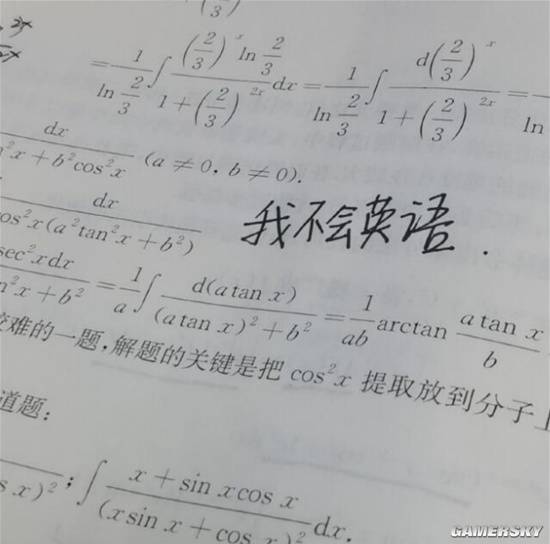 = 1/(ln 2/3) ∫ ((2/3)^x ln 2/3)/(1+(2/3)^{2x}) dx = 1/(ln 2/3) ∫ d(2/3)^x/(1+(2/3)^{2x}) =
dx/(²x+b²cos²x) (a≠0, b≠0).
dx/(os²x(a²tan²x+b²))
我不会英语.
sec²xdx/(n²x+b²) = 1/a ∫ d(atan x)/((atan x)²+b²) = 1/(ab) arctan (atan x)/b
难的一题,解题的关键是把 cos²x 提取放到分子上
道题:
; ∫ (x+sin xcos x)/((xsin x+cos x)²) dx.
GAMERSKY